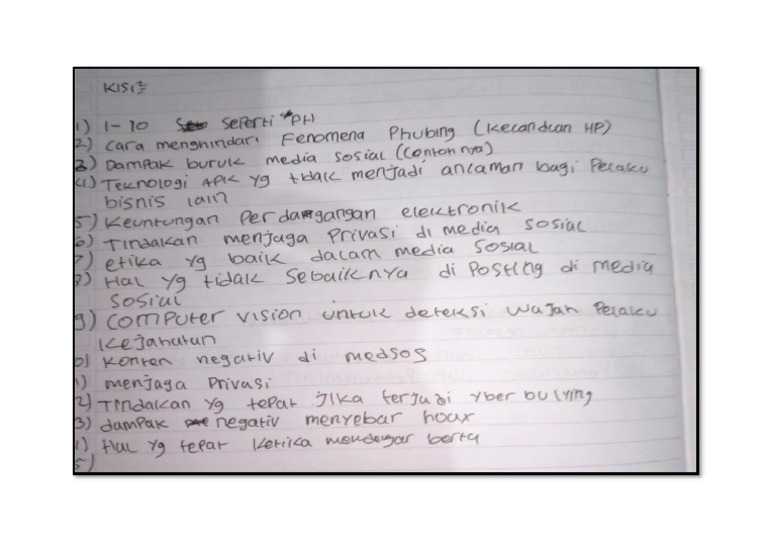 KISI²
1) 1-10 seperti PH
2) Cara menghindari Fenomena Phubing (Kecanduan HP)
3) Dampak buruk media sosial (Contohnya)
4) Teknologi APK yg tidak menjadi ancaman bagi Pelaku
bisnis lain
5) Keuntungan Perdagangan elektronik
6) Tindakan menjaga Privasi di media sosial
7) etika yg baik dalam media sosial
8) Hal yg tidak sebaiknya di Posting di media
sosial
9) Computer vision untuk deteksi wajah Pelaku
Kejahatan
0) Konten negativ di medsos
1) menjaga Privasi
2) Tindakan yg tepat jika terjadi yber bullying
3) dampak negativ menyebar hoax
1) Hal yg tepat ketika mendengar berta
5)